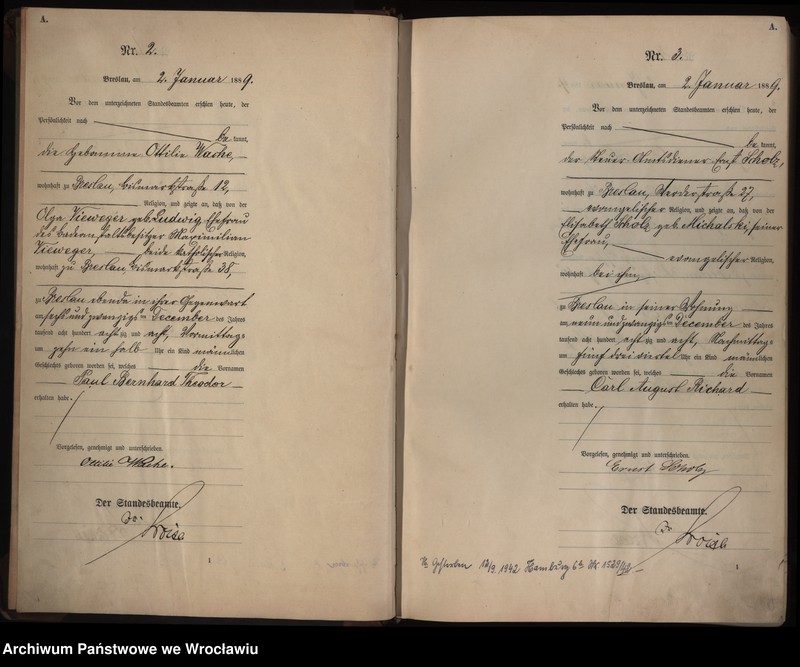 A.
Nr. 2.
Breslau, am 2. Januar 1889.
Vor dem unterzeichneten Standesbeamten erschien heute, der
Persönlichkeit nach
be kannt,
die Hebamme Ottilie Wache,
wohnhaft zu Breslau, Bismarckstraße 12,
Religion, und zeigte an, daß von der
Olga Vieweger geb. Ludwig, Ehefrau
des Badeanstaltsbesitzer Maximilian
Vieweger, beide katholischer Religion,
wohnhaft zu Breslau, Bismarckstraße 38,
zu Breslau ebenda in ihrer Gegenwart
am sechs und zwanzigsten December des Jahres
tausend acht hundert acht zig und acht, Vormittags
um zehn ein halb Uhr ein Kind männlichen
Geschlechts geboren worden sei, welches die Vornamen
Paul Bernhard Theodor
erhalten habe.
Vorgelesen, genehmigt und unterschrieben.
Ottilie Wache.
Der Standesbeamte.
1
A.
Nr. 3.
Breslau, am 2. Januar 1889.
Vor dem unterzeichneten Standesbeamten erschien heute, der
Persönlichkeit nach
be kannt,
der Steuer Amtsdiener Ernst Scholz,
wohnhaft zu Breslau, Werderstraße 27,
evangelischer Religion, und zeigte an, daß von der
Elisabeth Scholz geb. Michalski, seiner
Ehefrau,
evangelischer Religion,
wohnhaft bei ihm,
zu Breslau in seiner Wohnung
am neun und zwanzigsten December des Jahres
tausend acht hundert acht zig und acht, Nachmittags
um fünf drei viertel Uhr ein Kind männlichen
Geschlechts geboren worden sei, welches die Vornamen
Carl August Richard
erhalten habe.
Vorgelesen, genehmigt und unterschrieben.
Ernst Scholz
Der Standesbeamte.
Gestorben 12/9. 1942 Hamburg
1
Archiwum Państwowe we Wrocławiu